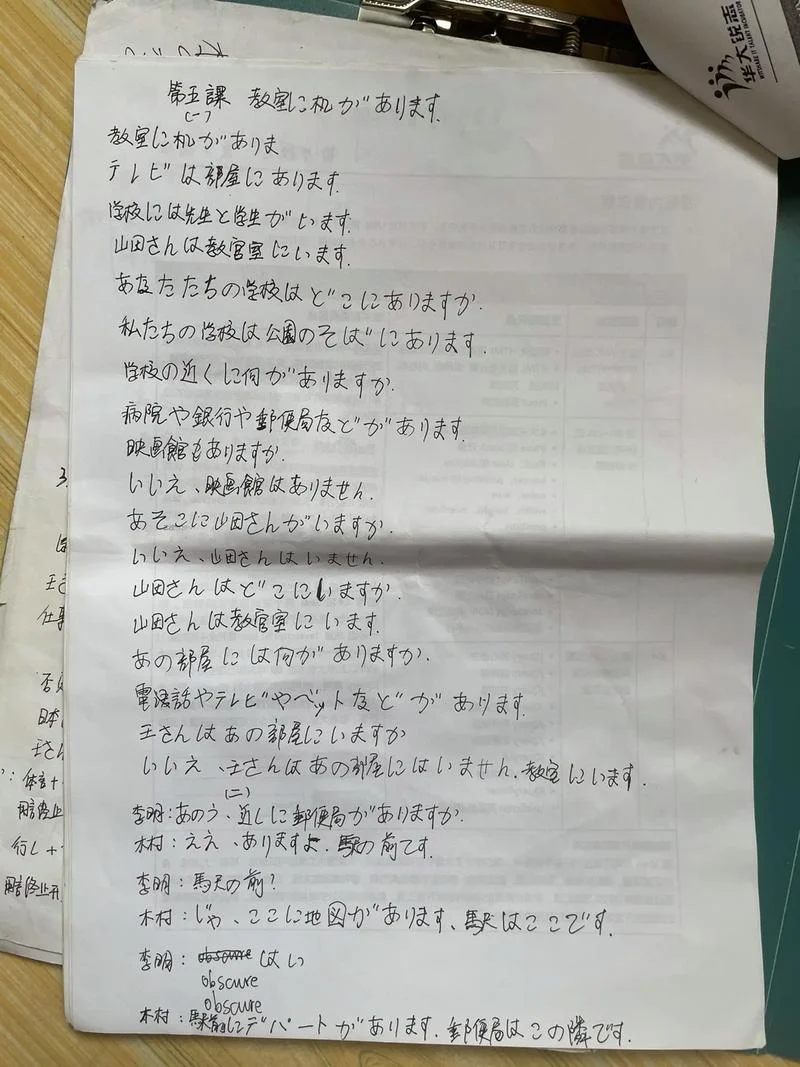 第五課 教室に机があります.
(一)
教室に机がありま
テレビは部屋にあります.
学校には先生と学生がいます.
山田さんは教官室にいます.
あなたたちの学校はどこにありますか.
私たちの学校は公園のそばにあります.
学校の近くに何がありますか.
病院や銀行や郵便局などがあります.
映画館もありますか.
いいえ、映画館はありません.
あそこに山田さんがいますか.
いいえ、山田さんはいません.
山田さんはどこにいますか.
山田さんは教官室にいます.
あの部屋には何がありますか.
電話やテレビやベットなどがあります.
王さんはあの部屋にいますか
いいえ、王さんはあの部屋にはいません.教室にいます.
(二)
李明:あのう、近くに郵便局がありますか.
木村:ええ、ありますよ.駅の前です.
李明:駅の前?
木村:じゃ、ここに地図があります、駅はここです.
李明: obscure はい
obscure
obscure
木村:駅前にデパートがあります.郵便局はこの隣です.
华大锐志
3.
王さ
仕事
日本
王さん
体言+
用言终止
行し+
用言终止形